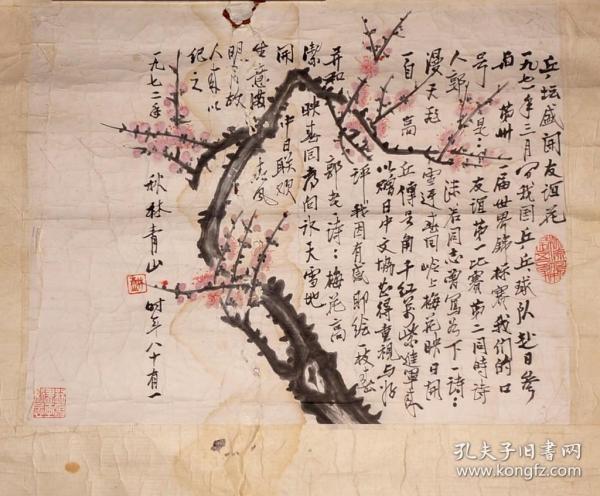 乒坛盛开友谊花
一九七一年三月 我国乒乓球队赴日参
加 第卅一届世界锦标赛我们的口
号是：友谊第一比赛第二同时诗
人郭沫若同志曾写 下一诗：
漫天 雪迎春回岭上梅花映日开
一自高丘传号角千红万紫进军来
以赠日中文协 得重视与好
评 我因有感即绘一枝
并和郭老一诗：梅花高
洁映春回 向冰天雪地
开 中日联欢 风
生意满
明月故
人来以
纪之
一九七二年
秋林青山 时年八十有一
孔夫子旧书网
www.kongfz.com